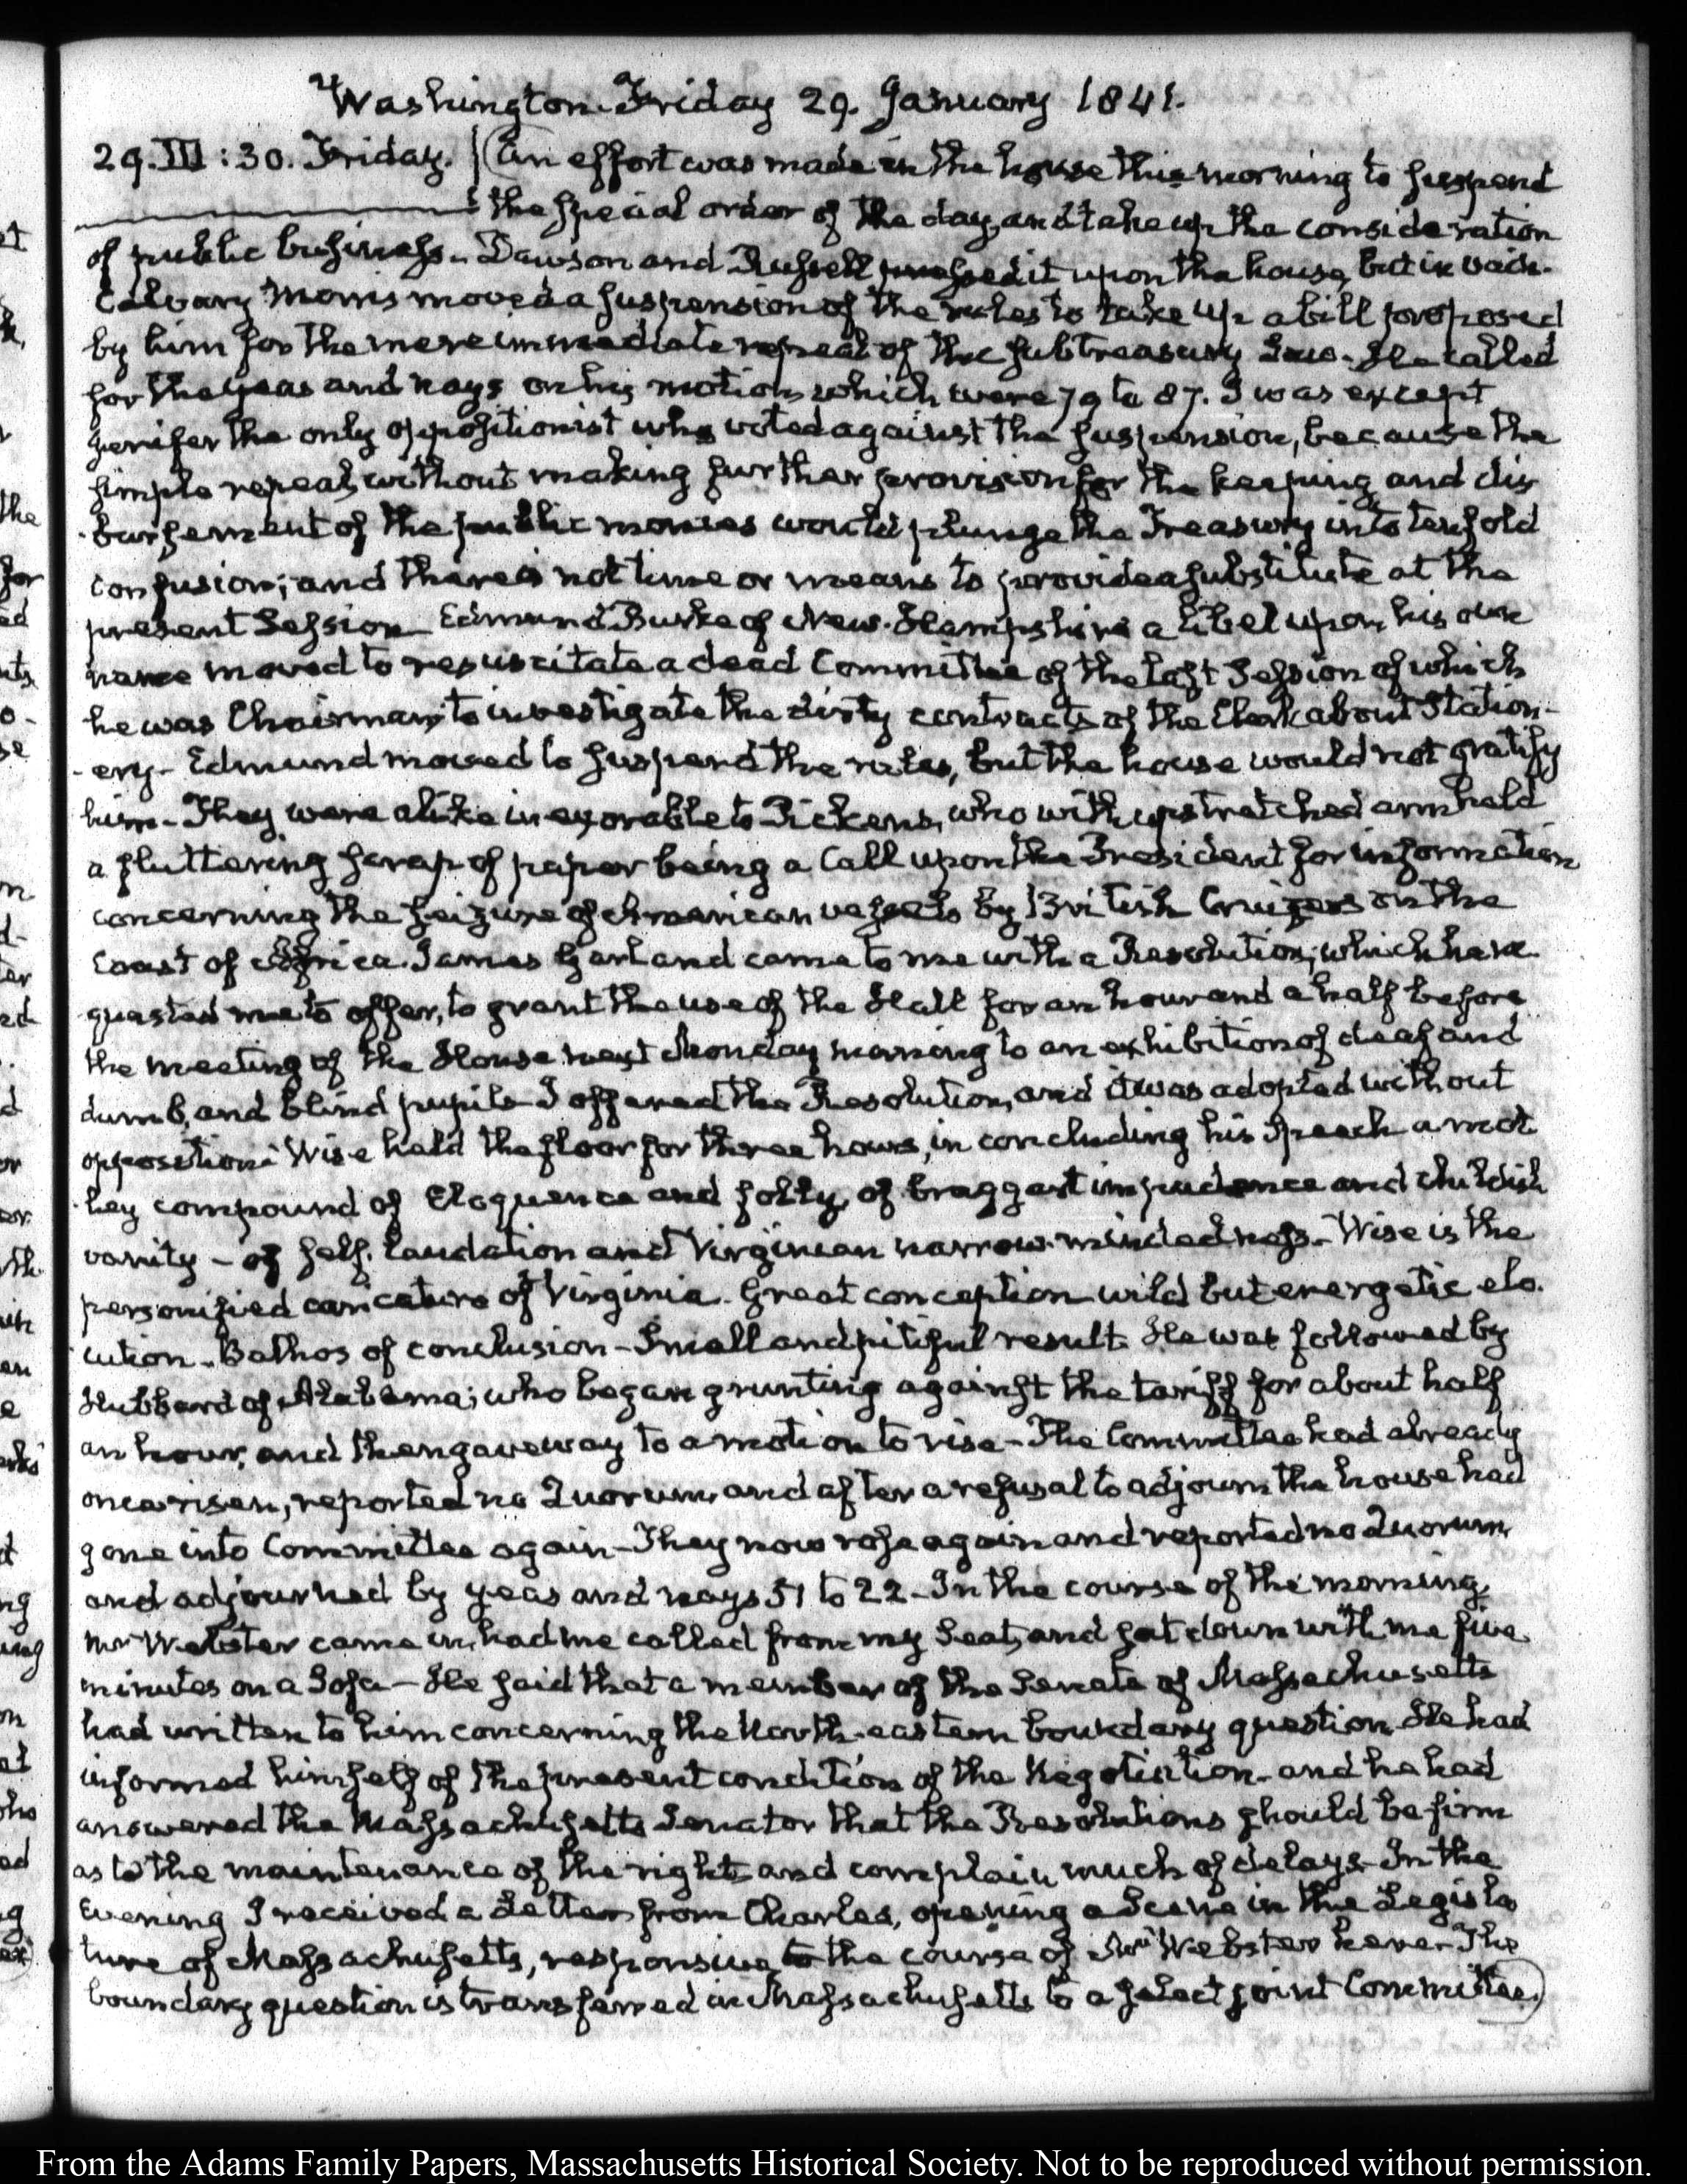 Washington Friday 29. January 1841.
29. III:30. Friday. (An effort was made in the house this morning to suspend
the special order of the day, and take up the consideration
of public business. Dawson and Russell pressed it upon the house, but in vain.
Calvary Morris moved a suspension of the rules to take up a bill proposed
by him for the mere immediate repeal of the subtreasury Law. He called
for the yeas and nays on his motion which were 79 to 87. I was except
Jenifer the only oppositionist who voted against the suspension, because the
simple repeal, without making further provision for the keeping and dis
-bursement of the public monies would plunge the Treasury into tenfold
confusion; and there is not time or means to provide a substitute at the
present Session — Edmund Burke of New-Hampshire a libel upon his own
name moved to resuscitate a dead Committee of the last Session of which
he was Chairman, to investigate the dirty contracts of the Clerk about Station-
-ery- Edmund moved to suspend the rules, but the house would not gratify
him- They were alike inexorable to Pickens, who with upstretched arm held
a fluttering scrap of paper being a Call upon the President for information
concerning the seizure of American vessels by British Cruizers on the
Coast of Africa. James Garland came to me with a Resolution, which he re
quested me to offer, to grant the use of the Hall for an hour and a half before
the meeting of the House next Monday morning to an exhibition of deaf and
dumb, and blind pupils- I offered the Resolution, and it was adopted without
opposition. Wise held the floor for three hours, in concluding his Speech a mot
-ley compound of Eloquence and folly, of braggart impudence and childish
vanity — of self-laudation and Virginian narrow-mindedness. Wise is the
personified caricature of Virginia. Great conception wild but energetic elo-
cution. Bathos of conclusion — Small and pitiful result. He was followed by
Hubbard of Alabama; who began grunting against the tariff for about half
an hour, and then gave way to a motion to rise — The Committee had already
once risen, reported no Quorum, and after a refusal to adjourn the house had
gone into Committee again — They now rose again and reported no Quorum,
and adjourned by yeas and nays 51 to 22 — In the course of the morning,
Mr Webster came in, had me called from my Seat, and sat down with me five
minutes on a Sofa — He said that a member of the Senate of Massachusetts
had written to him concerning the North-eastern boundary question. He had
informed himself of the present condition of the Negotiation- and he had
answered the Massachusetts Senator that the Resolutions should be firm
as to the maintenance of the right, and complain much of delays- In the
Evening I received a Letter from Charles, opening a Scene in the Legisla
ture of Massachusetts, responsive to the course of Mr Webster here- The
boundary question is transferred in Massachusetts to a select joint Committee.)
From the Adams Family Papers, Massachusetts Historical Society. Not to be reproduced without permission.